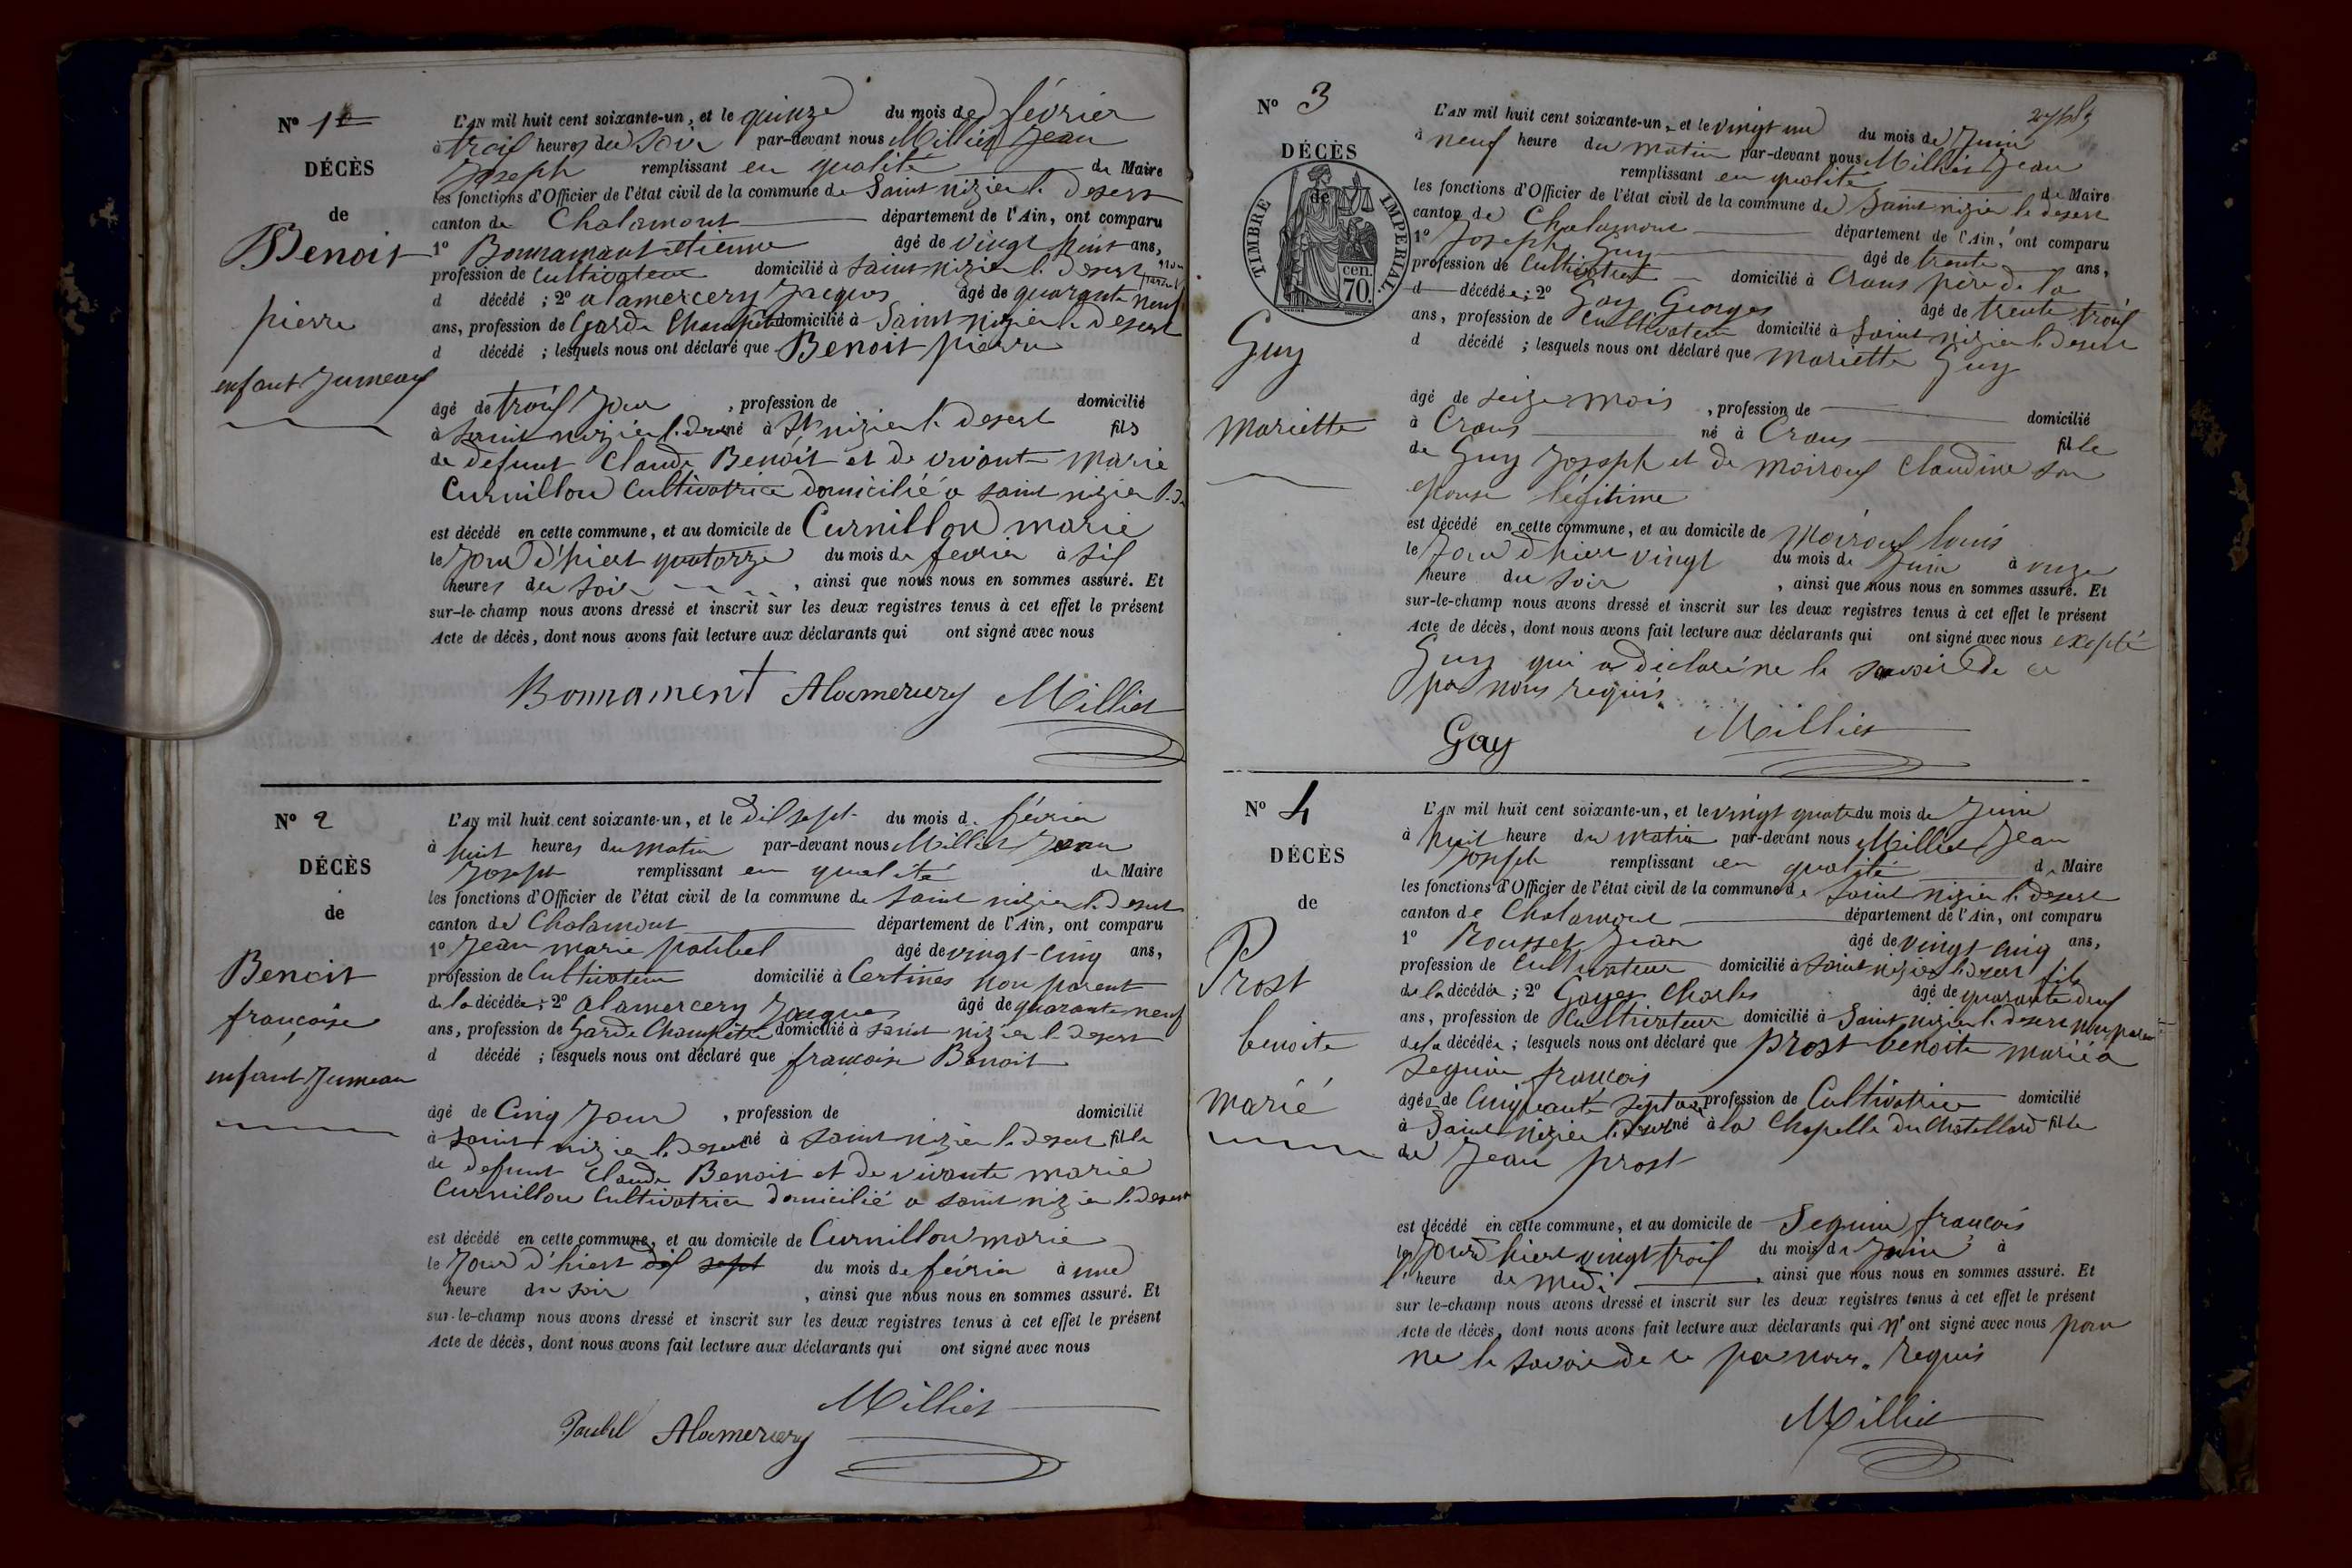 N° 1
DÉCÈS
de
Benoit
pierre
enfant Jumeaux
L'AN mil huit cent soixante-un, et le quinze du mois de février
à trois heures du Soir par-devant nous Milliet Jean
Joseph remplissant en qualité de Maire
les fonctions d'Officier de l'état civil de la commune de Saint nizier le Desert
canton de Chalamont département de l'Ain, ont comparu
1° Bonnamant etienne âgé de vingt huit ans,
profession de Cultivateur domicilié à Saint nizier le Desert non parent
d décédé ; 2° alamercery Jacques âgé de quarante neuf
ans, profession de Garde Champetre domicilié à Saint nizier le Desert
d décédé ; lesquels nous ont déclaré que Benoit pierre
âgé de trois Jour , profession de domicilié
à Saint nizier le desert né à St nizier le Desert fils
de defunt Claude Benoit et de vivante Marie
Curnillon Cultivatrice domicilié a saint nizier l. D.
est décédé en cette commune, et au domicile de Curnillon marie
le Jour d'hier quatorze du mois de fevrier à six
heures du soir , ainsi que nous nous en sommes assuré. Et
sur-le-champ nous avons dressé et inscrit sur les deux registres tenus à cet effet le présent
Acte de décès, dont nous avons fait lecture aux déclarants qui ont signé avec nous
Bonnament Alamercery Milliet
N° 2
DÉCÈS
de
Benoit
francoise
enfant Jumeau
L'AN mil huit cent soixante-un, et le dix sept du mois d. février
à huit heures du matin par-devant nous Milliet Jean
Joseph remplissant en qualité de Maire
les fonctions d'Officier de l'état civil de la commune de Saint nizier le Desert
canton de Chalamont département de l'Ain, ont comparu
1° Jean marie paubel âgé de vingt-cinq ans,
profession de Cultivateur domicilié à Certines non parent
de la décédée ; 2° alamercery Jacques âgé de quarante neuf
ans, profession de Garde Champetre domicilié à saint nizier le desert
d décédé ; lesquels nous ont déclaré que francoise Benoit
âgé de Cinq Jour , profession de domicilié
à saint nizier le desert né à saint nizier le desert fille
de defunt Claude Benoit et de vivante marie
Curnillon Cultivatrice domicilié a saint nizier le desert
est décédé en cette commune, et au domicile de Curnillon marie
le Jour d'hiert dix sept du mois de février à une
heure du soir , ainsi que nous nous en sommes assuré. Et
sur-le-champ nous avons dressé et inscrit sur les deux registres tenus à cet effet le présent
Acte de décès, dont nous avons fait lecture aux déclarants qui ont signé avec nous
Milliet
Paubel Alamercery
N° 3
DÉCÈS
de
TIMBRE IMPÉRIAL.
cen.
70.
Guy
mariette
L'AN mil huit cent soixante-un, et le vingt un du mois de Juin
à neuf heure du matin par-devant nous Milliet Jean
remplissant en qualité de Maire
les fonctions d'Officier de l'état civil de la commune de Saint nizier le desert
canton de Chalamont département de l'Ain, ont comparu
1° Joseph Guy âgé de trente ans,
profession de Cultivateur domicilié à Crans père de la
d décédée ; 2° Gay Georges âgé de trente trois
ans, profession de Cultivateur domicilié à Saint nizier le desert
d décédé ; lesquels nous ont déclaré que mariette Guy
âgé de seize mois , profession de domicilié
à Crans né à Crans fille
de Guy Joseph et de moiroux Claudine son
epouse légitime
est décédé en cette commune, et au domicile de Moiroux louis
le Jour d'hier vingt du mois de Juin à onze
heure du soir , ainsi que nous nous en sommes assuré. Et
sur-le-champ nous avons dressé et inscrit sur les deux registres tenus à cet effet le présent
Acte de décès, dont nous avons fait lecture aux déclarants qui ont signé avec nous excepté
Guy qui a déclaré ne le savoir De ce
par nous requis.
Gay Milliet
N° 4
DÉCÈS
de
Prost
benoite
marié
L'AN mil huit cent soixante-un, et le vingt quatre du mois de Juin
à huit heure du matin par-devant nous Milliet Jean
Joseph remplissant en qualité de Maire
les fonctions d'Officier de l'état civil de la commune de saint nizier le desert
canton de Chalamont département de l'Ain, ont comparu
1° Rousset Jean âgé de vingt cinq ans,
profession de Cultivateur domicilié à saint nizier le desert fils
de la décédée ; 2° Goyer Charles âgé de quarante deux
ans, profession de Cultivateur domicilié à Saint nizier le desert non parent
de la décédée ; lesquels nous ont déclaré que prost benoite mariée a
seguin francois
âgée de Cinquante sept ans profession de Cultivatrice domicilié
à Saint nizier le desert né à la Chapelle du Chatellard fille
de Jean prost
est décédé en cette commune, et au domicile de Seguin francois
le Jour d'hiert vingt trois du mois de Juin à
l'heure de medi , ainsi que nous nous en sommes assuré. Et
sur le-champ nous avons dressé et inscrit sur les deux registres tenus à cet effet le présent
Acte de décès, dont nous avons fait lecture aux déclarants qui n'ont signé avec nous pour
ne le savoir de ce par nous. Requis
Milliet